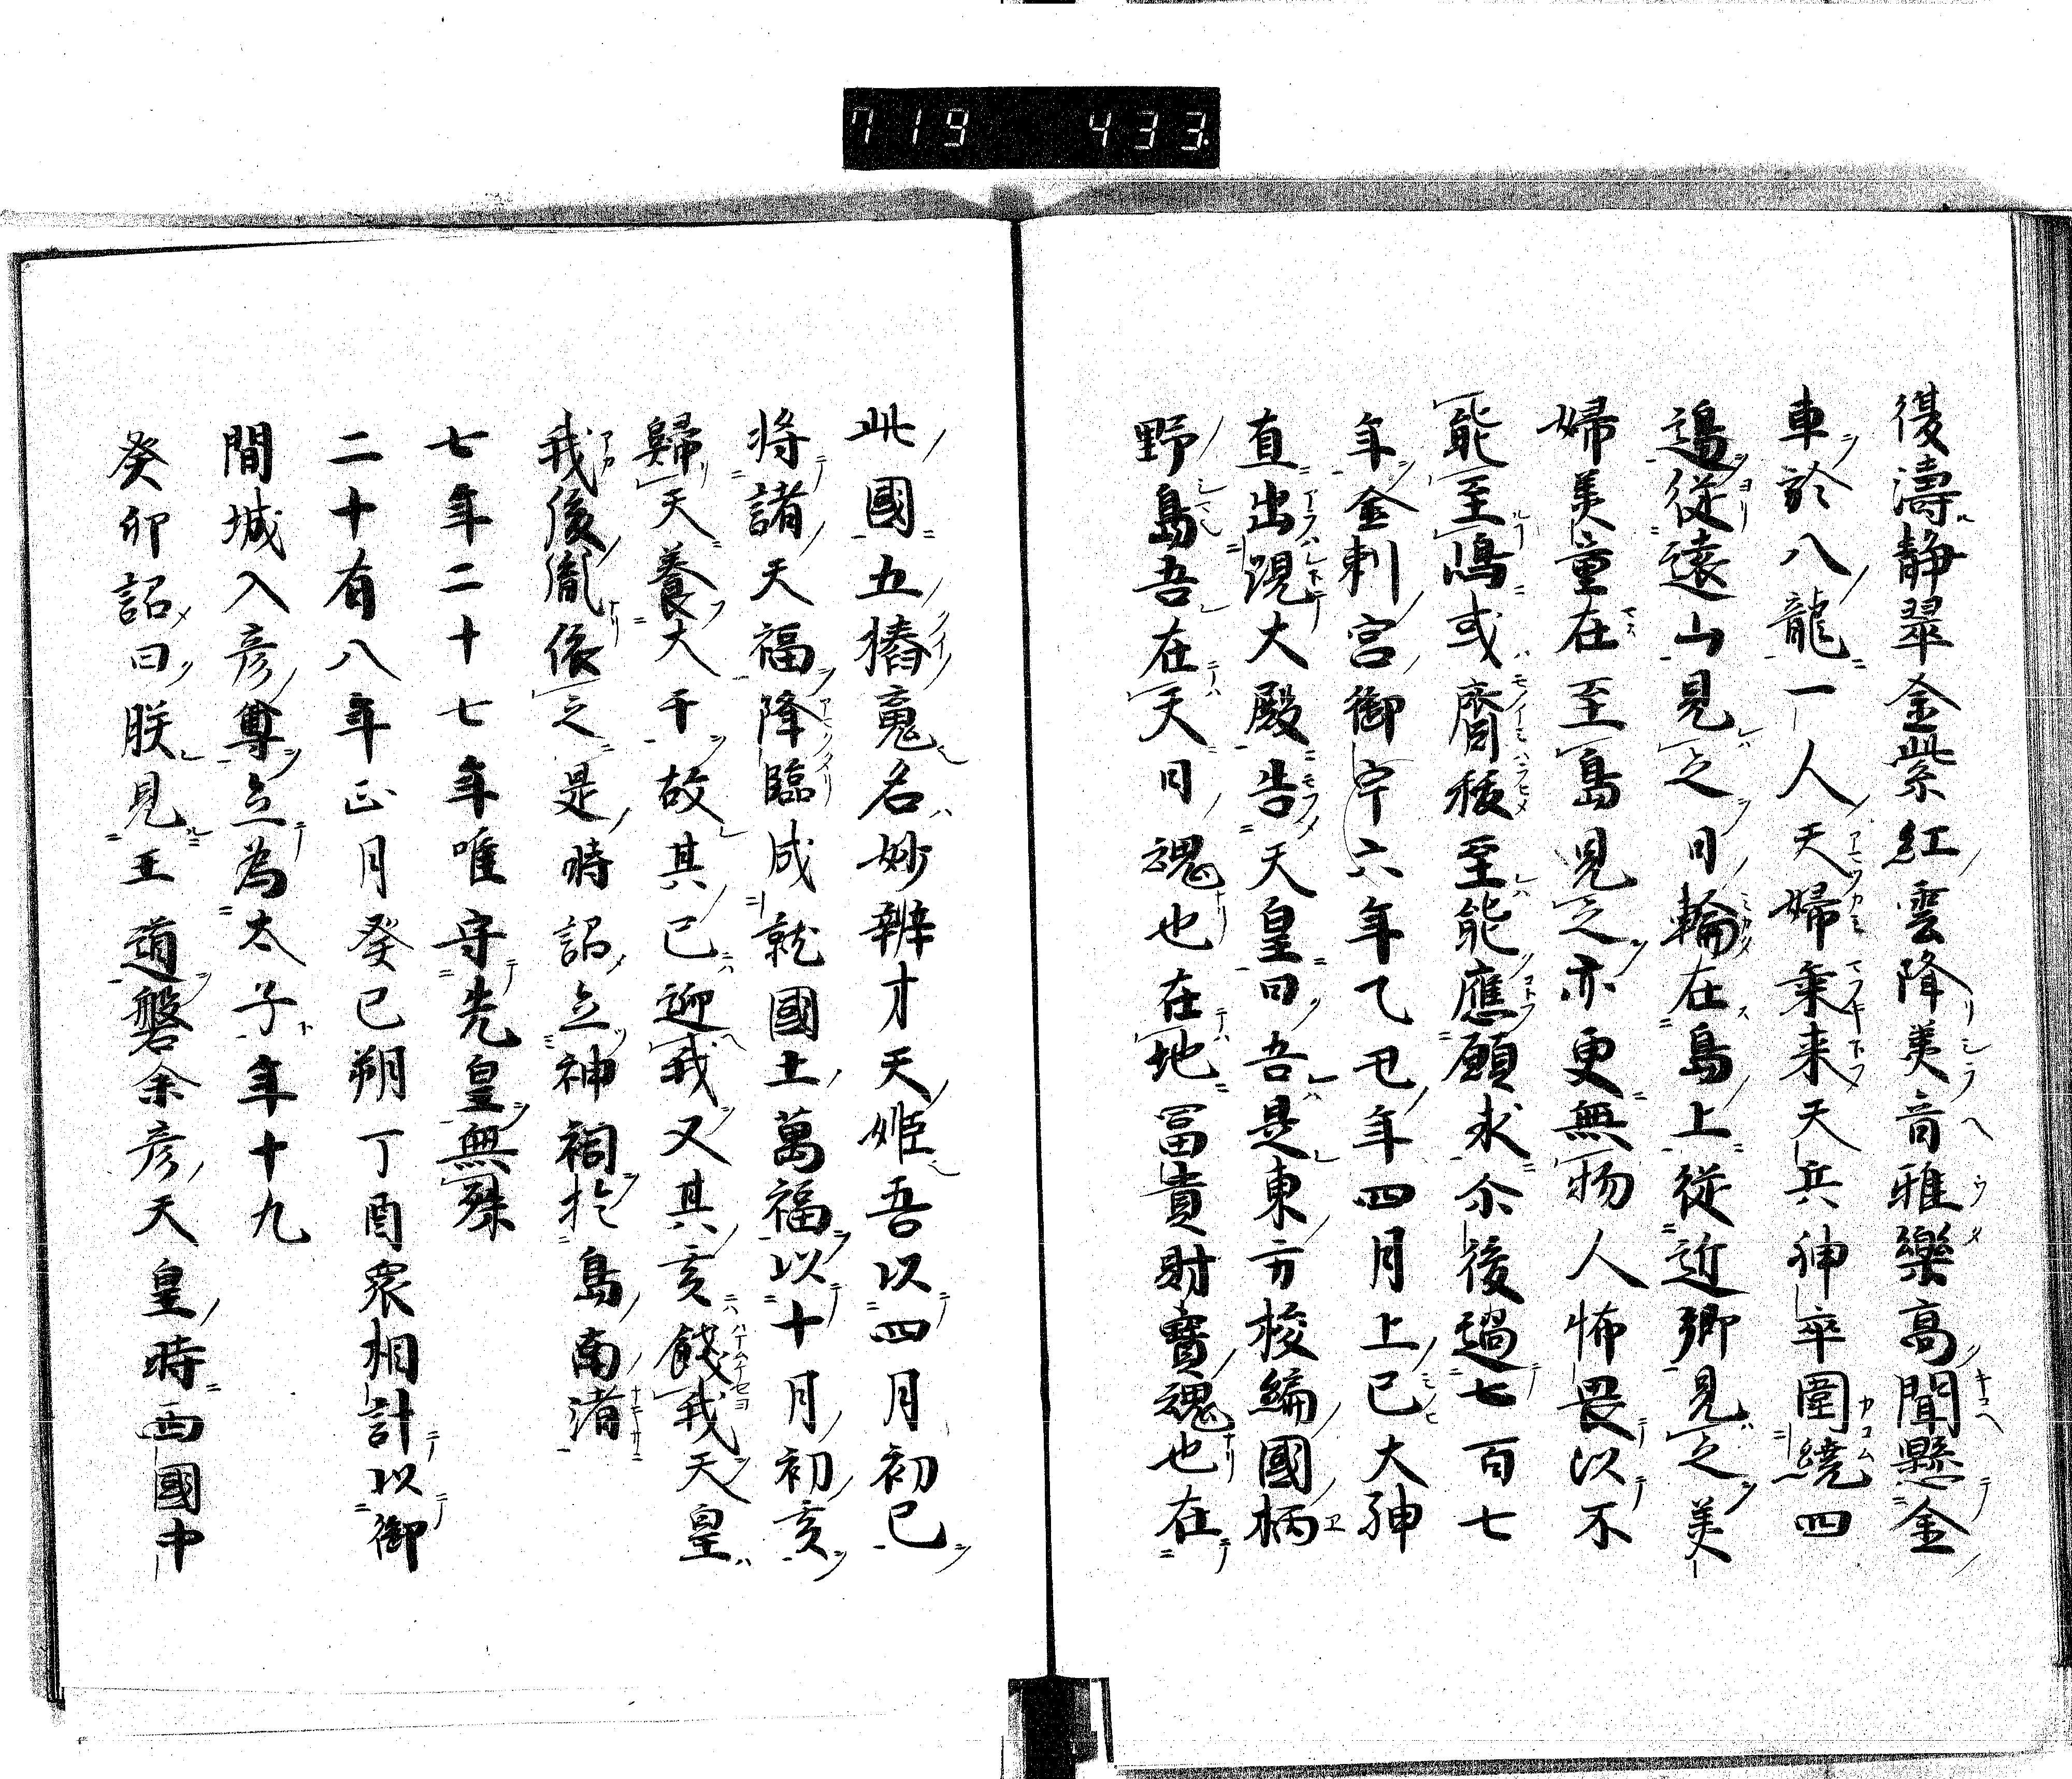 719 433
復濤静翠金紫紅雲降美音雅樂高聞懸金
車於八龍一人天婦乗来天兵神卒圍繞四
邊從遠山見之日輪在島上從近郷見之美
婦美童在至島見之亦更無物人怖畏以不
能至嶋或齋稜至能應願求尒後過七百七
年金刺宮御宇六年乙丑年四月上巳大神
直出現大殿告天皇曰吾是東方梭編國柄
野島吾在天日魂也在地冨貴財寳魂也在
此國五樁嵬名妙辨才天姫吾以四月初巳
将諸天福降臨成就國土萬福以十月初亥
歸天養大千故其巳迎我又其亥餞我天皇
我後胤依之是時詔立神祠於島南渚
七年二十七年唯守先皇無殊
二十有八年正月癸巳朔丁酉衆相計以御
間城入彦尊立為太子年十九
癸卯詔曰朕見王道磐余彦天皇時西國中